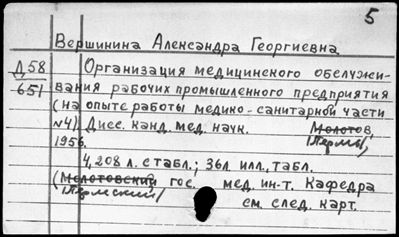 5
Вершинина Александра Георгиевна
Д58
651
Организация медицинского обслужи-
вания рабочих промышленного предприятия
(на опыте работы медико-санитарной части
№4). Дисс. канд. мед. наук. Молотов,
1956. Пермь,
4,208 л. с табл.; 36л. илл., табл.
(Молотовский гос. мед. ин-т. Кафедра
Пермский
см. след. карт.